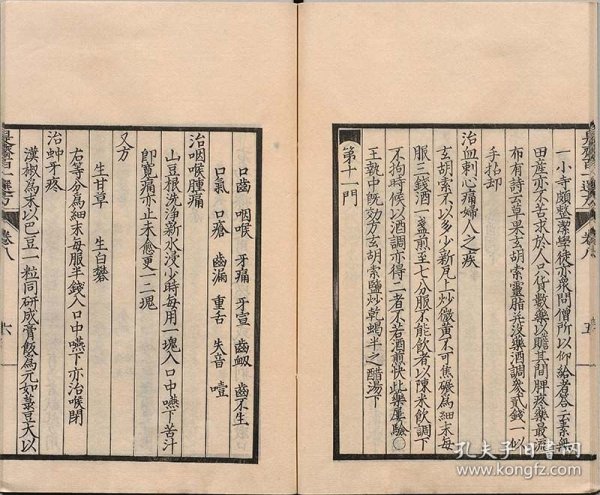 一小寺頗整潔學徒亦衆問僧所以仰給者答云素無
田産亦不苦求於人只貨數藥以贍其間脾疼藥最流
布有詩云草果玄胡索靈脂并没藥酒調叁貳錢一似
手拈却
治血刺心痛婦人之疾
玄胡索不以多少新瓦上炒微黄不可焦碾為細末每
服三錢酒一盞煎至七分服不能飲者以陳米飲調下
不拘時候以酒調亦得二者不若酒煎快此藥屢驗〇
王執中既効方玄胡索鹽炒乾蝎半之醋湯下
第十一門
卷八
五
口齒 咽喉 牙痛 牙宣 齒衂 齒不生
口氣 口瘡 齒漏 重舌 失音 噎
治咽喉腫痛
山豆根洗淨新水浸少時每用一塊入口中嚥下苦汁
即寛痛亦止未愈更一二塊
又方
生甘草 生白礬
右等分為細末每服半錢入口中嚥下亦治喉閉
治蚛牙疼
漢椒為末以巴豆一粒同研成膏飯為元如菉豆大以
是齋百一選方
卷八
六
孔夫子旧书网
www.kongfz.com